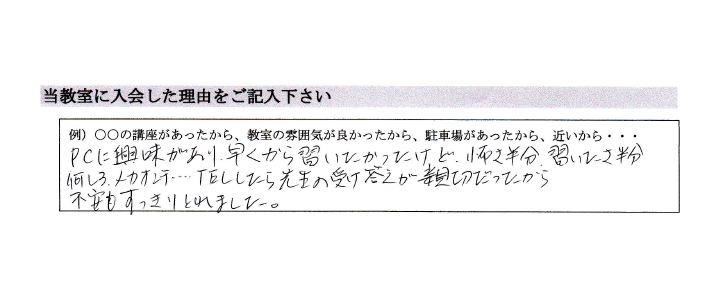 当教室に入会した理由をご記入下さい
例）〇〇の講座があったから、教室の雰囲気が良かったから、駐車場があったから、近いから・・・
PCに興味があり、早くから習いたかったけど、怖さ半分、習いたさ半分
何しろ、メカオンチ…TELしたら先生の受け答えが親切だったから
不安もすっきりとれました。